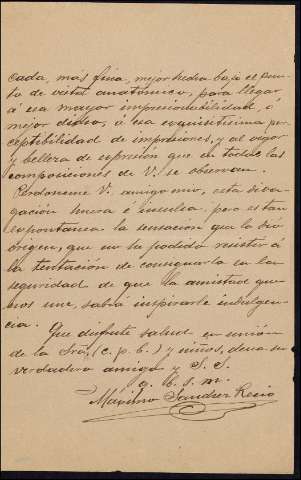 cada, mas fina, mejor hecha bajo el pun-
to de vista anatómico, para llegar
á esa mayor impresionabilidad, ó
mejor dicho, á esa exquisitísima per-
ceptibilidad de impresiones, y al vigor
y belleza de espresión que en todas las
composiciones de V. se observan.
Perdoneme V. amigo mio, esta diva-
gación huera é insulsa; pero es tan
espontanea la sensación que la dió
origen, que no he podido resistir á
la tentación de consignarla en la
seguridad de que la amistad que
nos une, sabrá inspirarle indulgen-
cia.
Que disfrute salud en unión
de la Sra, (c. p. b.) y niños, desea su
verdadero amigo y S. S.
q. b. s. m.
Máximo Sanchez Recio